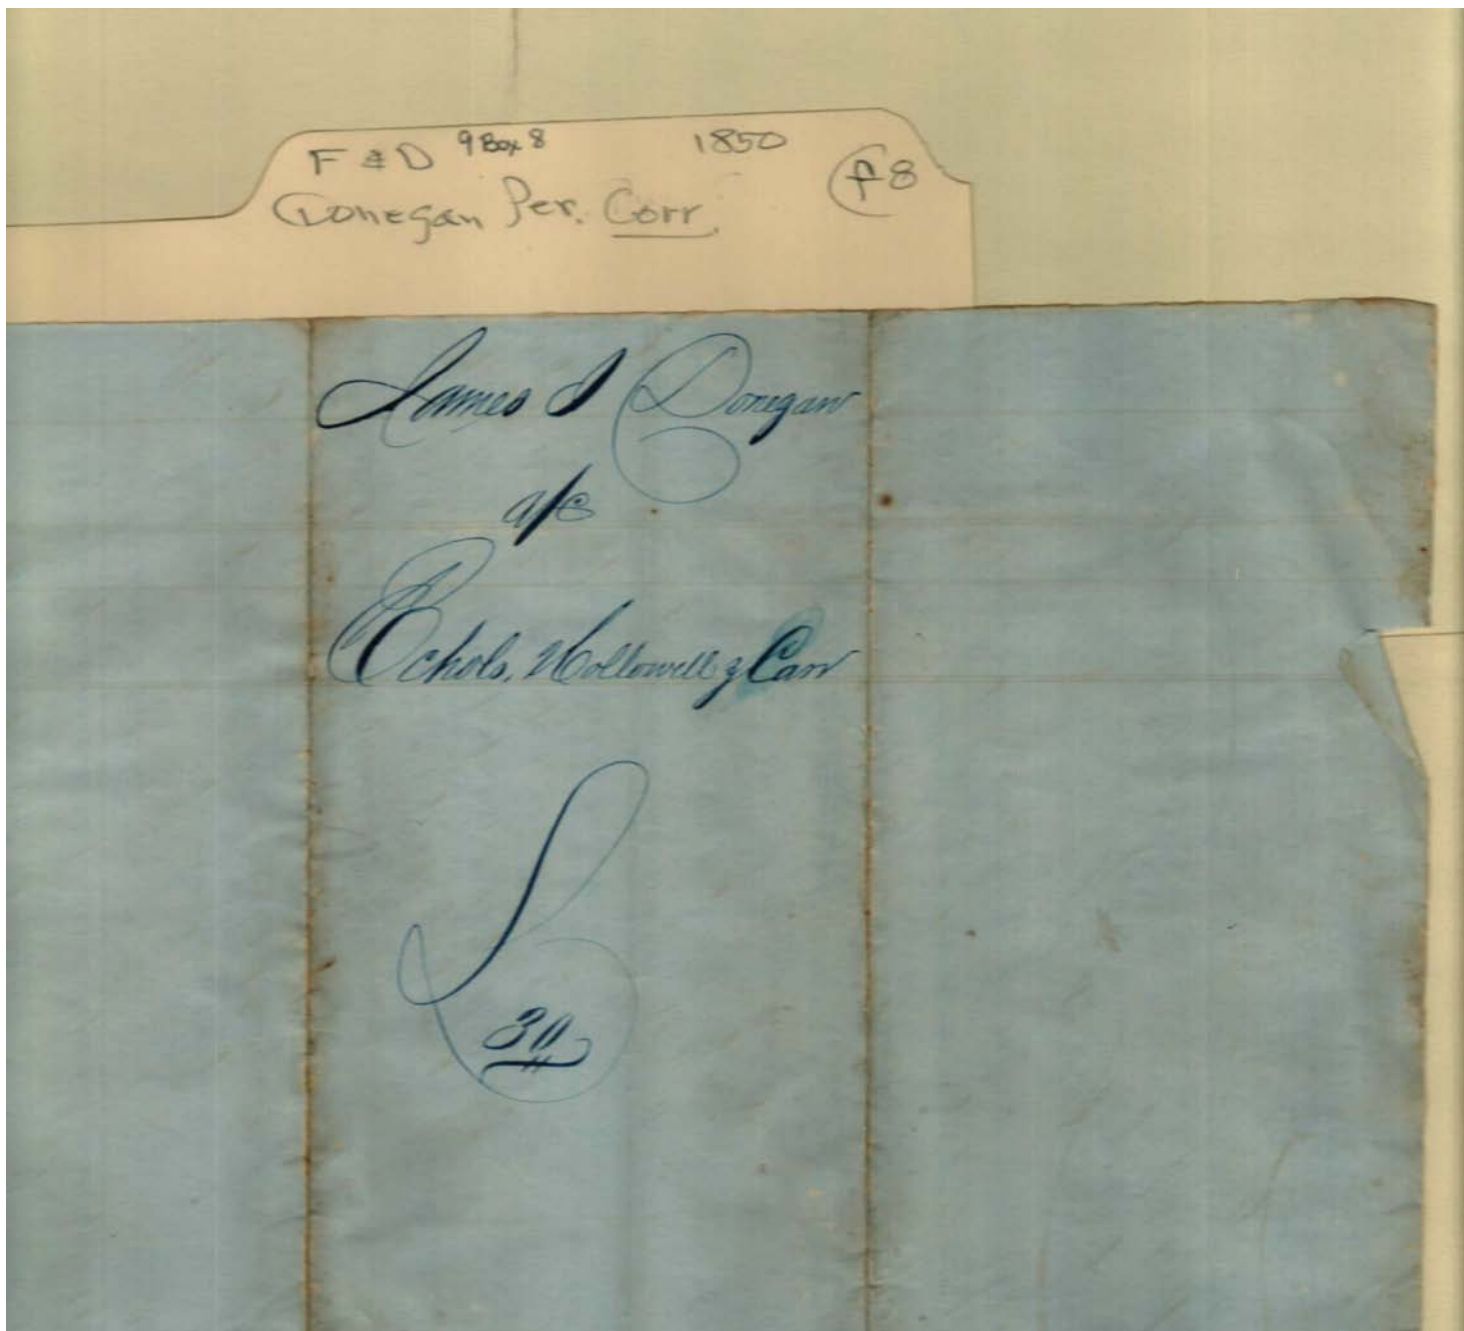 F & D 9 Box 8 1850 f8
Donegan Per. Corr.
James J Donegan
a/c
Echols, Hollowell & Carr
30